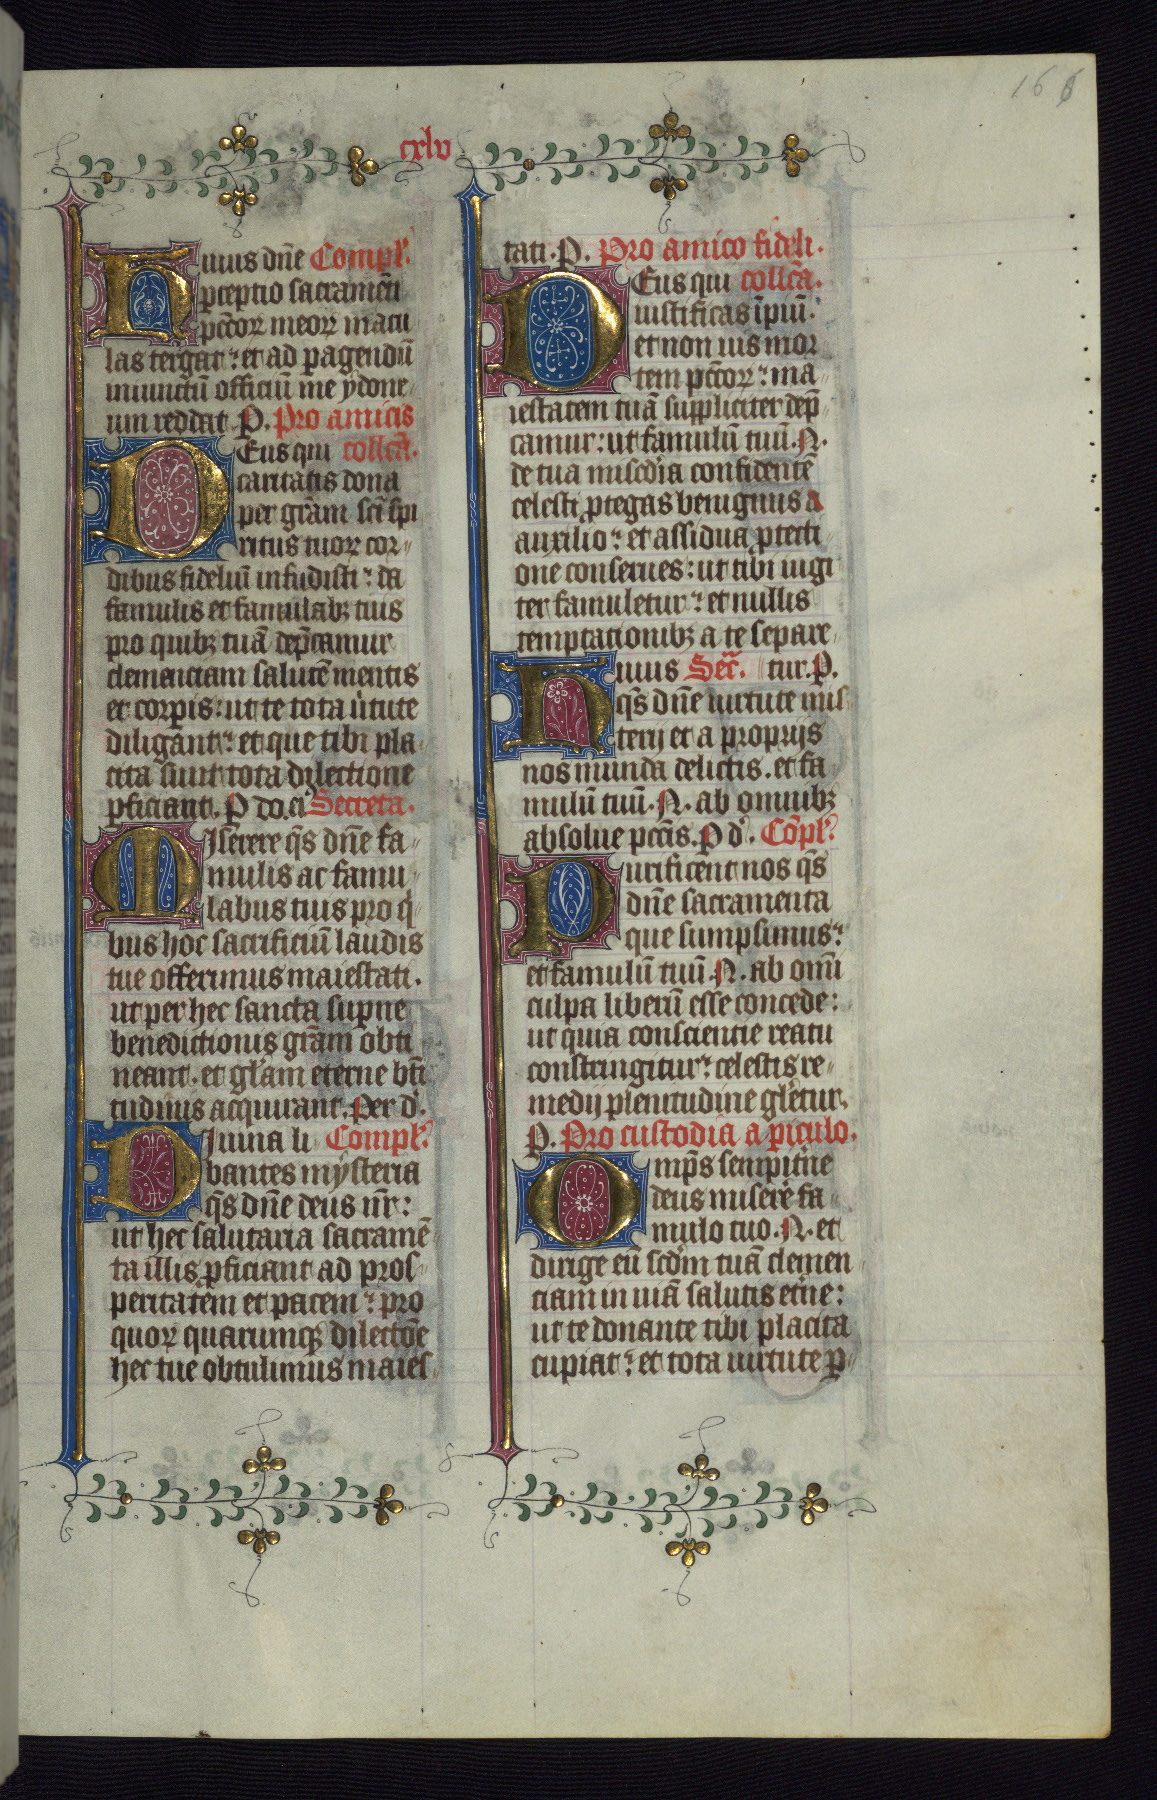 166
cxlv
Huius dn̄e Compl̄.
p̱ceptio sacramēti
pctōꝝ meoꝝ macu
las tergat: et ad p̱agendū
iniunctū officiū me ydone-
um reddat. P. Pro amicis
Deus qui collc̄a.
caritatis dona
per grām sc̄i spi
ritus tuoꝝ cor-
dibus fideliū infudisti: da
famulis et famulabꝫ tuis
pro quibꝫ tuā dep̄camur
clementiam salutē mentis
et corp̱is: ut te tota ũtute
diligant: et que tibi pla-
cita sunt tota dilectione
p̱ficiant. P do. ei Secreta.
Miserere q̄s dn̄e fa-
mulis ac famu-
labus tuis pro q̇-
bus hoc sacrificiū laudis
tue offerimus maiestati.
ut per hec sancta sup̱ne
benedictionis grām obti
neant. et gl̄am eterne bt̄i
tudinis acquirant. Per d̄.
Diuina li Compl̄.
bantes mysteria
q̄s dn̄e deus nr̄:
ut hec salutaria sacramē-
ta illis ꝓficiant ad pros-
peritatem et pacem: pro
quoꝝ quarumqꝫ dilectōe
hec tue obtulimus maies-
tati. P. Pro amico fideli.
Deus qui collc̄a.
iustificas īpiū.
et non uis mor
tem pctōꝝ: ma-
iestatem tuā suppliciter dep̄-
camur: ut famulū tuū. N.
de tua mis̄c̄dia confidentē
celesti ꝓtegas benignus a
auxilio: et assidua ꝓtecti
one conserues: ut tibi iugi
ter famuletur: et nullis
temptationibꝫ a te separe-
Huius Secr̄. tur. P.
q̄s dn̄e uirtute mis-
terij et a proprijs
nos munda delictis. et fa
mulū tuū. N. ab omnibꝫ
absolue pctīs. P d̄. Cōpl̄.
Purificent nos q̄s
dn̄e sacramenta
que sumpsimus:
et famulū tuū. N. ab om̄i
culpa liberū esse concede:
ut quia conscientie reatu
constringitur: celestis re-
medij plenitudine glētur.
P. Pro custodia a p̱iculo.
Omp̄s sempit̄ne
deus miserē fa-
mulo tuo. N. et
dirige eū scdm̄ tuā clemen-
ciam in uiā salutis et̄ne:
ut te donante tibi placita
cupiat: et tota uirtute p̱-